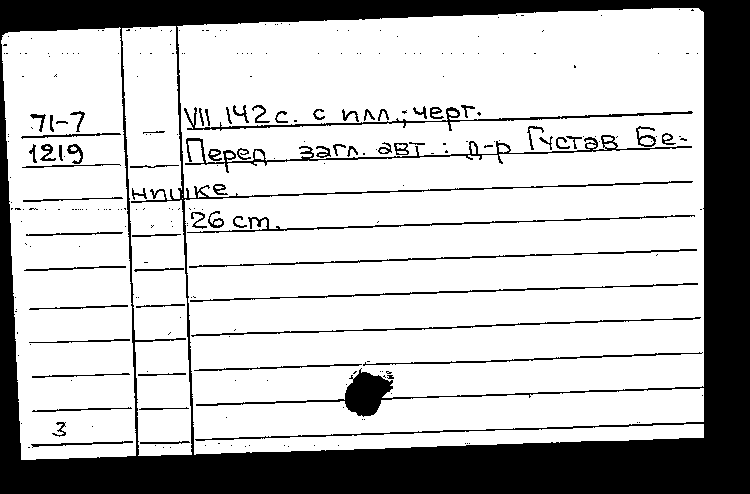 71-7 — VII, 142 с. с илл.; черт.
1219 Перед загл. авт.: д-р Густав Бе-
нишке.
26 cm.
3